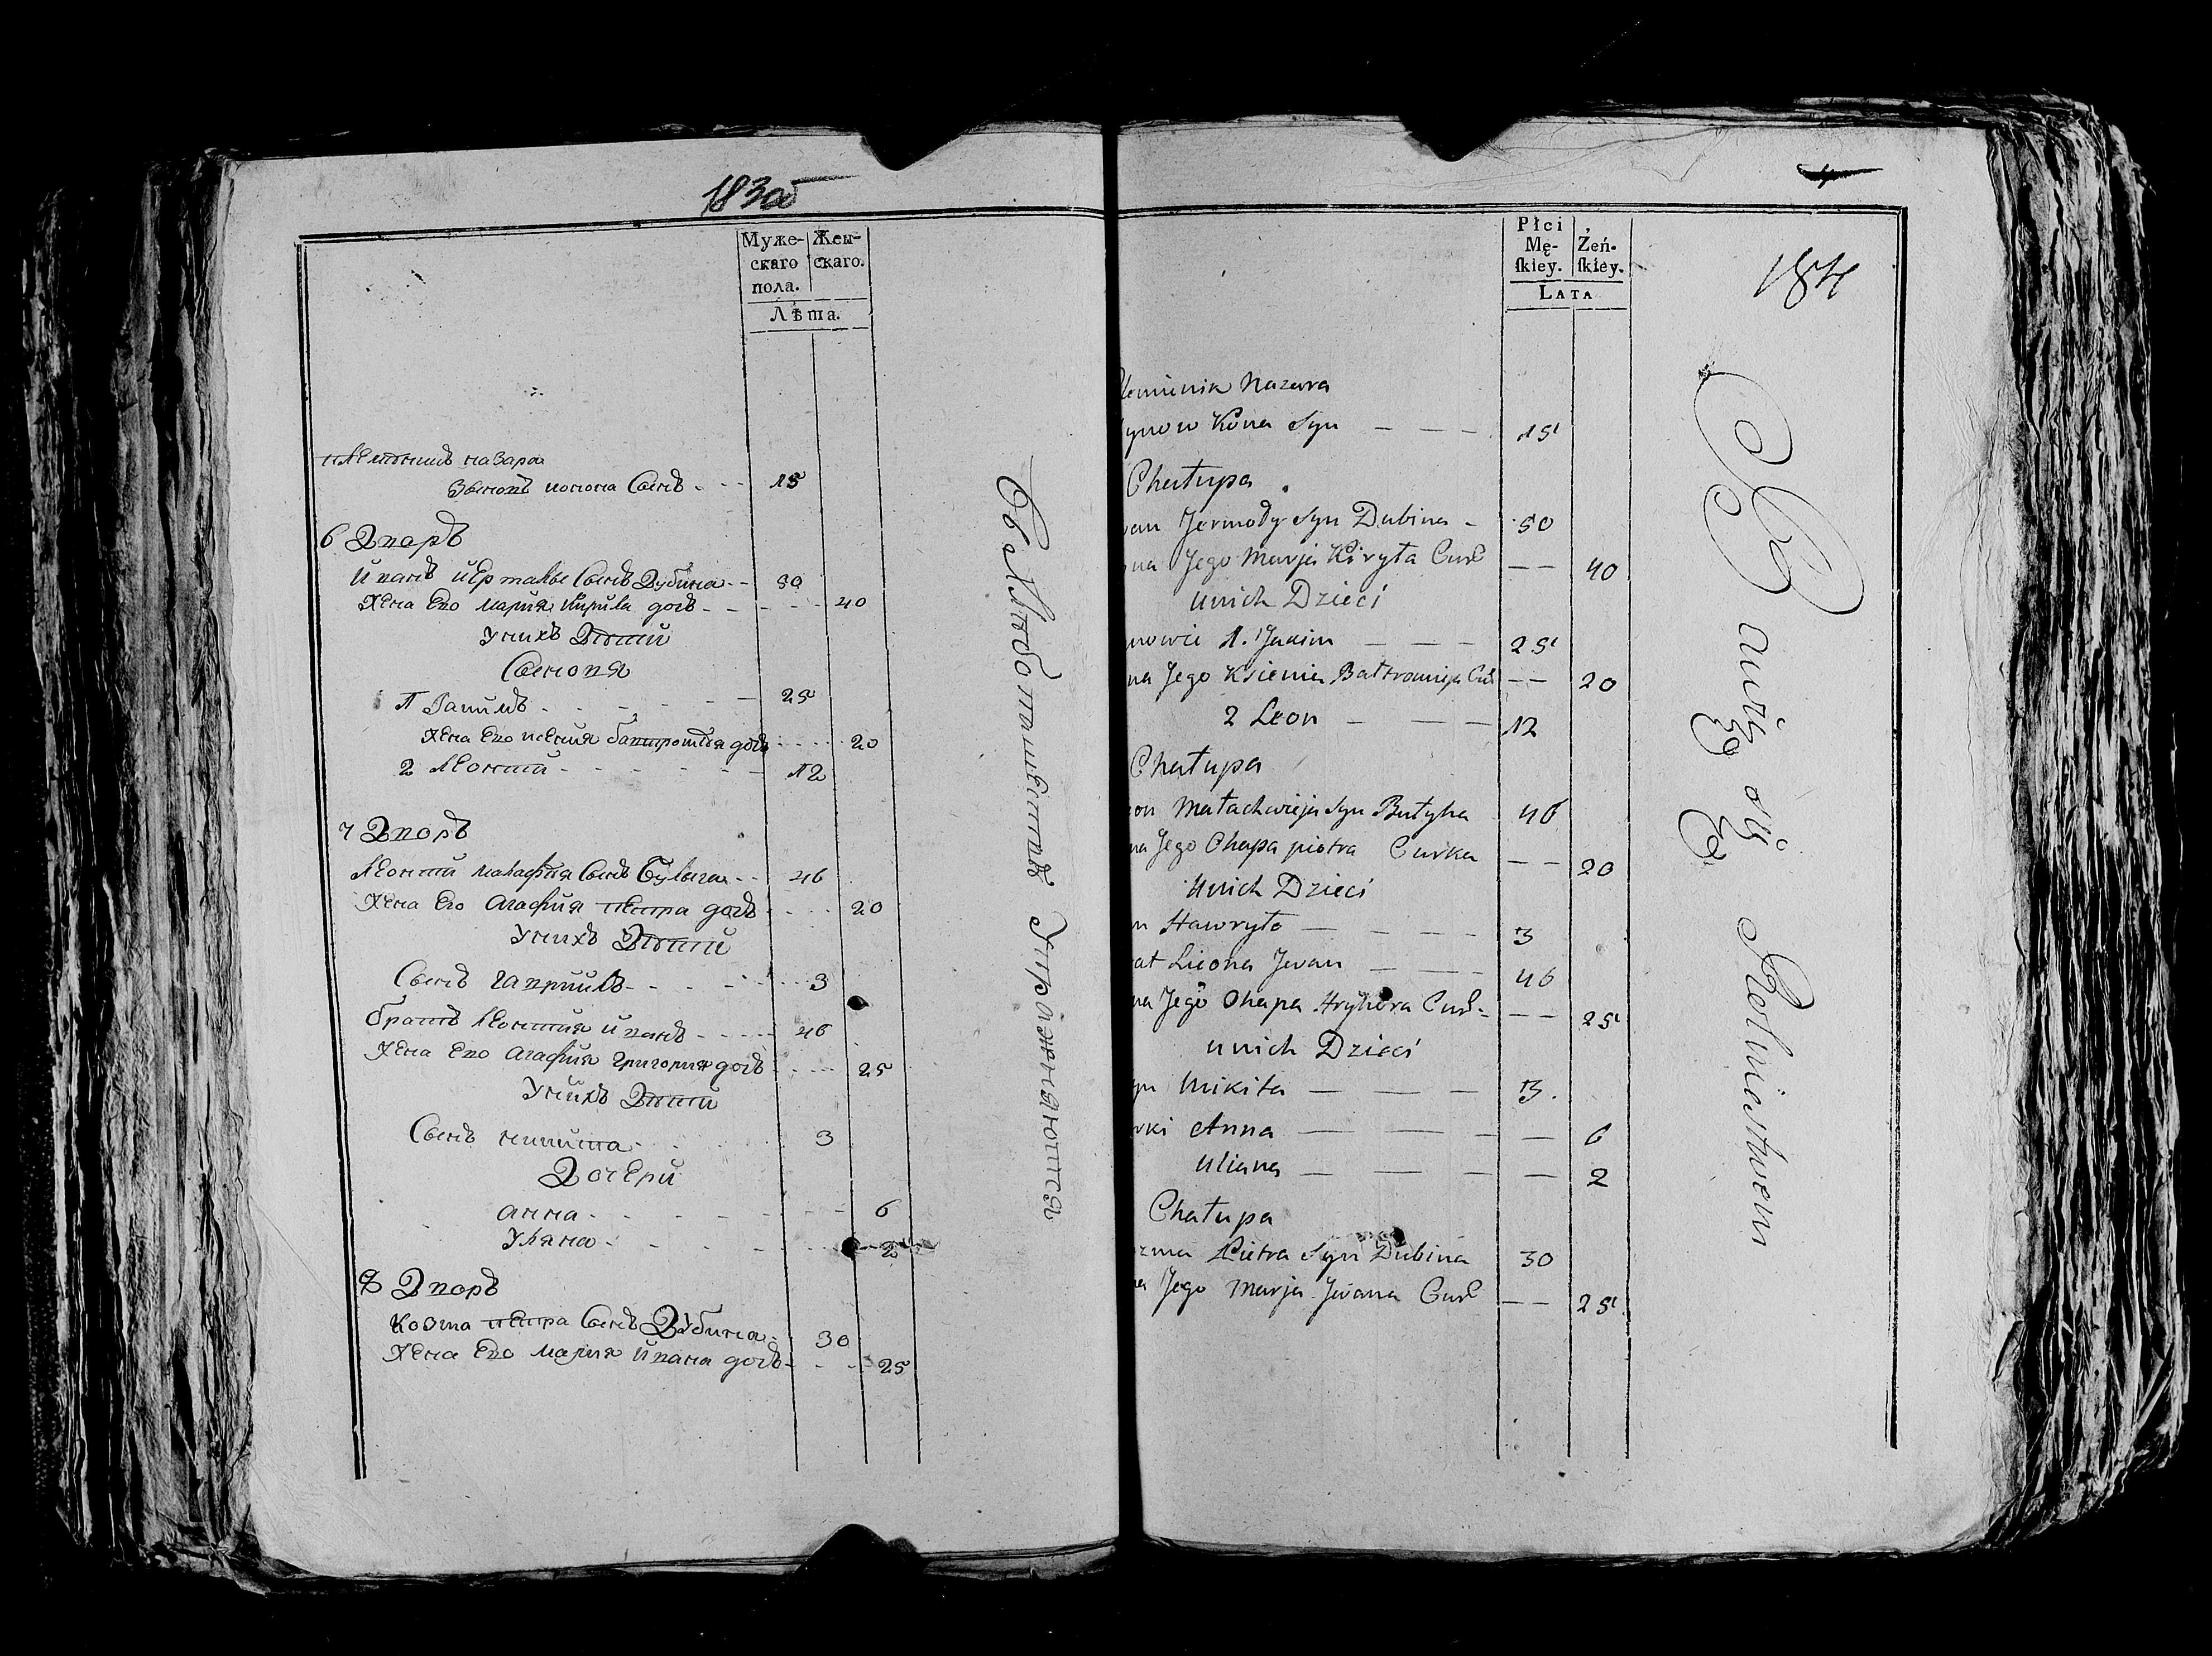 183об
Муже- Жен-
скаго скаго.
пола.
Лѣта.
племенникъ назара
Зѣновъ конона Сынъ 15
6 Дворъ
Иванъ иермалы Сынъ Дубина 50
Жена Его мария кирила дочь 40
У нихъ Дѣти
Сыновя
1 Якимъ 25
Жена Его ксения балтромѣя дочь 20
2 Леонтий 12
7 Дворъ
Леонтий малафѣя Сынъ Булыга 46
Жена Его Агафия петра дочь 20
У нихъ Дѣти
Сынъ гаврийлъ 3
братъ Леонтия иванъ 46
Жена Его Агафия григория дочь 25
У нихъ Дѣти
Сынъ никита 3
Дочери
анна 6
Уляна 2
8 Дворъ
Козма петра Сынъ Дубина 30
Жена Его мария ивана дочь 25
Въ хлѣбопашествѣ Упражняются
184
Płci
Mę- Żeń-
ſkiey. ſkiey.
LATA
lemienik Nazara
ynow Kona Syn 15
Chałupa
wan Jermoły Syn Dubina 50
na Jego Marja Kiryła Curk 40
u nich Dzieci
nowie 1. Jakim 25
na Jego Ksienia Bałtromieja Cur 20
2 Leon 12
Chałupa
on Małachwieja Syn Bułyha 46
na Jego Ohapa piotra Curka 20
u nich Dzieci
n Hawryło 3
at Leona Jwan 46
na Jego Ohapa Hryhora Curk 25
u nich Dzieci
yn Mikita 3
rki Anna 6
Uliana 2
Chałupa
zma Pietra Syn Dubina 30
na Jego Marja Jwana Curk 25
Rolnictwem